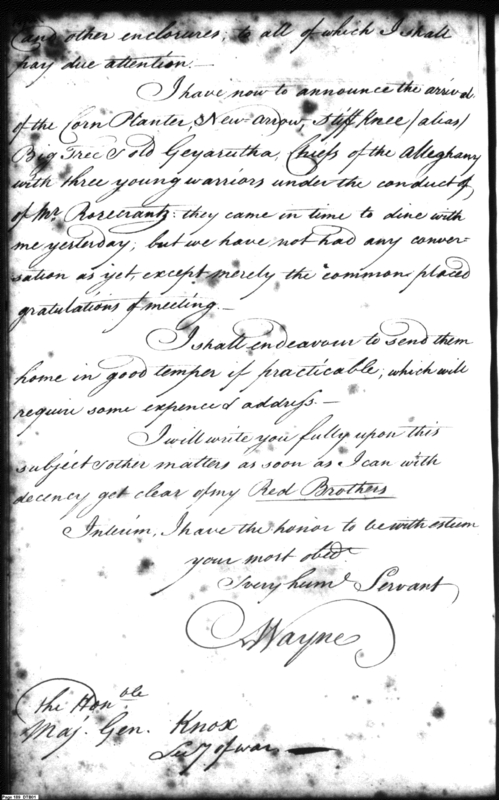 (and other enclosures; to all of which I shall
pay due attention.—
I have now to announce the arrival
of the Corn Planter, New-Arrow, Stiff Knee (alias)
Big Tree & old Geyarutha, Chiefs of the Alleghany
with three young warriors under the conduct of
of Mr. Rosecrantz. they came in time to dine with
me yesterday; but we have not had any conver-
sation as yet, except merely the common placed
gratulations of meeting —
I shall endeavour to send them
home in good temper if practicable; which will
require some expence & address.—
I will write you fully upon this
subject & other matters as soon as I can with
decency get clear of my Red Brothers
Interim, I have the honor to be with esteem
your most obedt.
& very huml. Servant
A Wayne
The Honble
Maj. Gen. Knox
Secy of war —